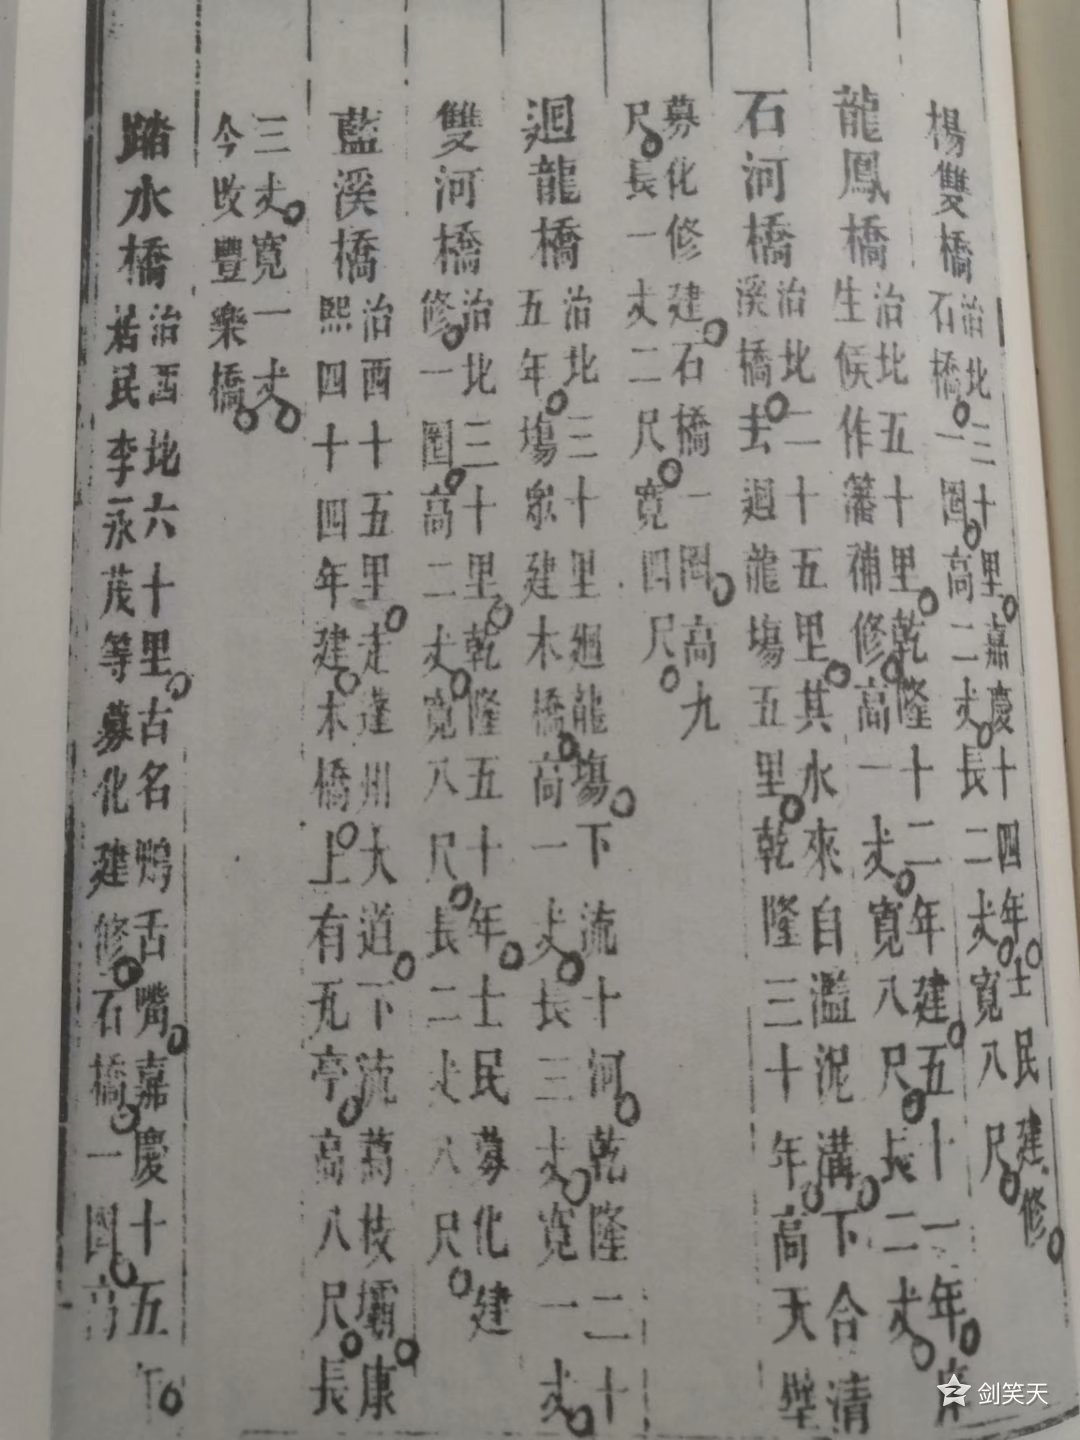 楊雙橋
治北三十里。嘉慶十四年。士民建修。
石橋。一圈。高二丈。長二丈。寬八尺。
龍鳳橋
治北五十里。乾隆十二年建。五十一年。庠
生候作籓補修。高一丈。寬八尺。長二丈。
石河橋
治北二十五里。其水來自濫泥溝。下合清
溪橋。去迴龍塲五里。乾隆三十年。高天壁
募化修建。石橋一圈。高九
尺。長一丈二尺。寬四尺。
迴龍橋
治北三十里迴龍塲。下流十河。乾隆二十
五年。塲眾建木橋。高一丈。長三丈。寬一丈。
雙河橋
治北三十里。乾隆五十年。士民募化建
修。一圈。高二丈。寬八尺。長二丈八尺。
藍溪橋
治西十五里。走蓬州大道。下流萬枝壩。康
熙四十四年建。木橋。上有瓦亭。高八尺。長
三丈。寬一丈。
今改豐樂橋。
踏水橋
治西北六十里。古名鴨舌嘴。嘉慶十五年。
居民李永茂等募化建修。石橋。一圈。高
剑笑天